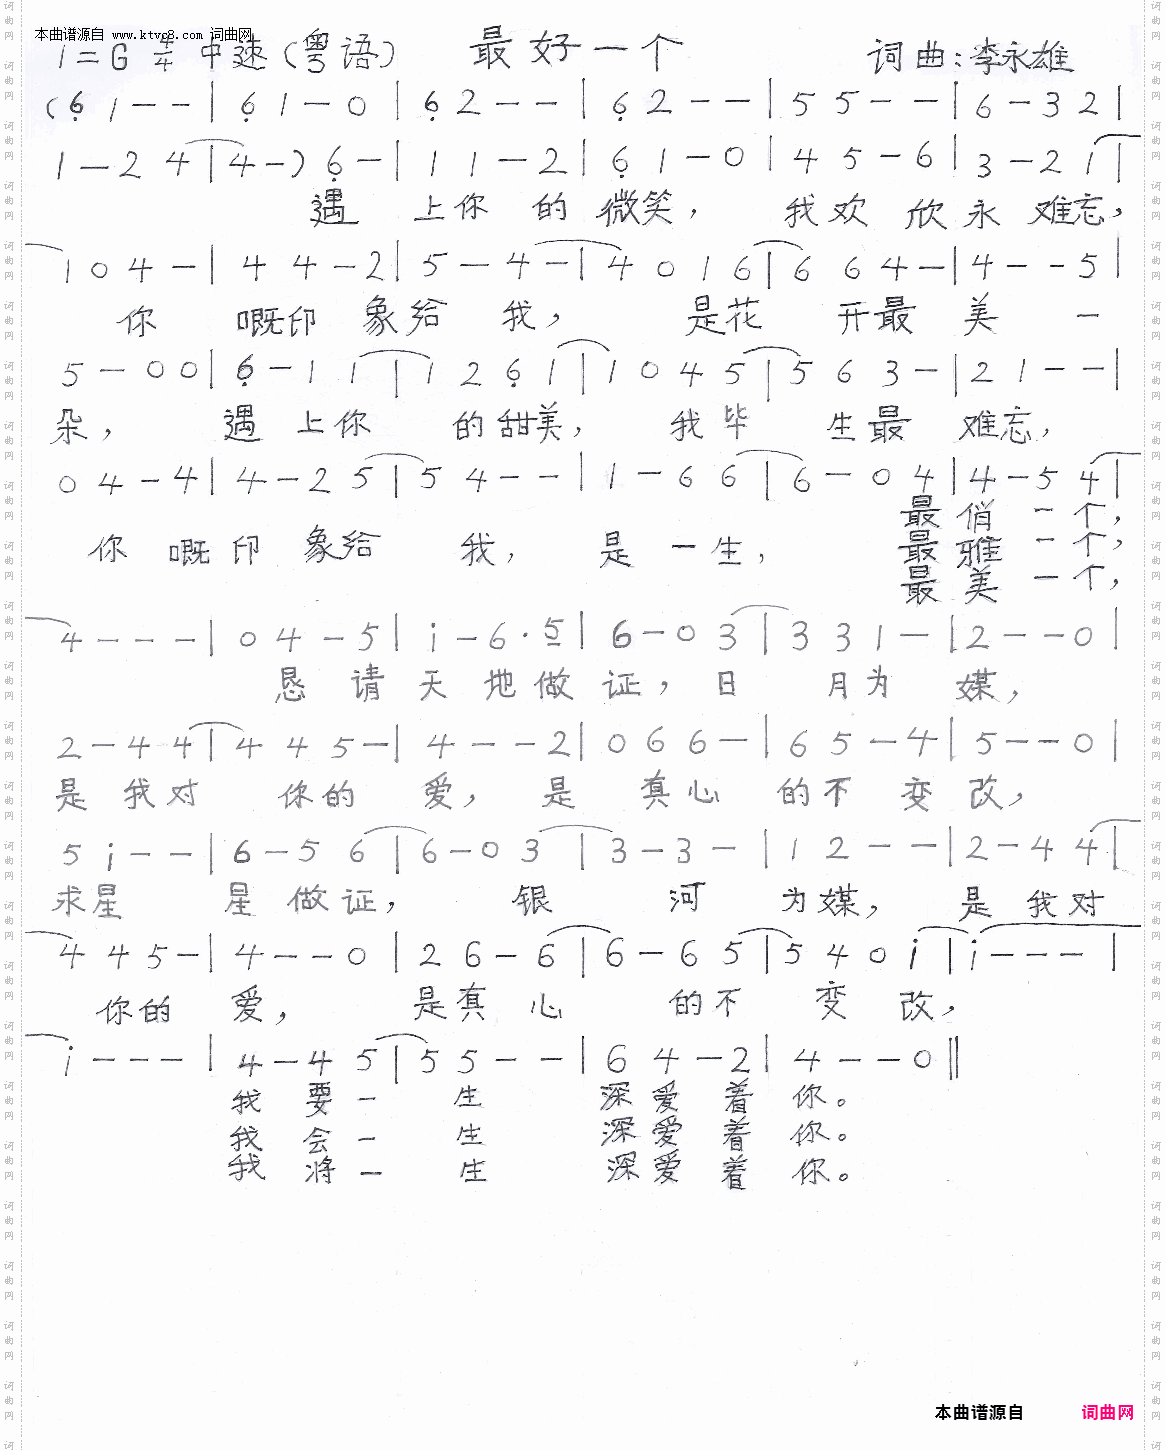 本曲谱源自 www.ktvc8.com 词曲网
1=G 4/4 中速(粤语) 最好一个 词曲:李永雄
(6̣ 1 - - | 6̣ 1 - 0 | 6̣ 2 - - | 6̣ 2 - - | 5 5 - - | 6 - 3 2 |
1 - 2 4 | 4 -) 6̣ - | 1 1 - 2 | 6̣ 1 - 0 | 4 5 - 6 | 3 - 2 1 |
遇 上你 的 微笑, 我欢 欣永 难忘,
1 0 4 - | 4 4 - 2 | 5 - 4 - | 4 0 1 6 | 6 6 4 - | 4 - - 5 |
你 嘅印 象给 我, 是花 开最 美 一
5 - 0 0 | 6̣ - 1 1 | 1 2 6̣ 1 | 1 0 4 5 | 5 6 3 - | 2 1 - - |
朵, 遇 上你 的甜美, 我毕 生最 难忘,
0 4 - 4 | 4 - 2 5 | 5 4 - - | 1 - 6 6 | 6 - 0 4 | 4 - 5 4 |
最 俏 一个,
你 嘅印 象给 我, 是 一生, 最 雅 一个,
最 美 一个,
4 - - - | 0 4 - 5 | i - 6 · 5 | 6 - 0 3 | 3 3 1 - | 2 - - 0 |
恳 请 天 地做 证, 日 月为 媒,
2 - 4 4 | 4 4 5 - | 4 - - 2 | 0 6 6 - | 6 5 - 4 | 5 - - 0 |
是 我对 你的 爱, 是 真心 的不 变 改,
5 i - - | 6 - 5 6 | 6 - 0 3 | 3 - 3 - | 1 2 - - | 2 - 4 4 |
求星 星 做证, 银 河 为媒, 是 我对
4 4 5 - | 4 - - 0 | 2 6 - 6 | 6 - 6 5 | 5 4 0 i | i - - - |
你的 爱, 是真 心 的不 变 改,
i - - - | 4 - 4 5 | 5 5 - - | 6 4 - 2 | 4 - - 0 ‖
我 要一 生 深爱 着 你。
我 会一 生 深爱 着 你。
我 将一 生 深爱 着 你。
本曲谱源自 词曲网